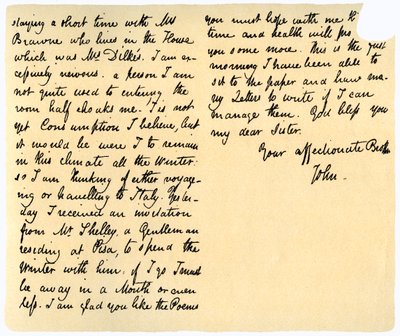 staying a short time with Mrs
Brawne who lives in the House
which was Mrs Dilke's. I am ex-
cessively nervous. a person I am
not quite used to entering the
room half choaks me. 'T is not
yet Consumption I believe, but
it would be were I to remain
in this climate all the Winter:
so I am thinking of either voyage-
ing or travelling to Italy. Yester-
day I received an invitation
from Mr Shelley, a Gentleman
residing at Pisa, to spend the
Winter with him: if I go I must
be away in a Month or even
less. I am glad you like the Poems
you must hope with me that
time and health will pro
you some more. This is the first
morning I have been able to
sit to the paper and have ma-
ny Letters to write if I can
manage them. God bless you
my dear Sister.
Your affectionate Brother
John—